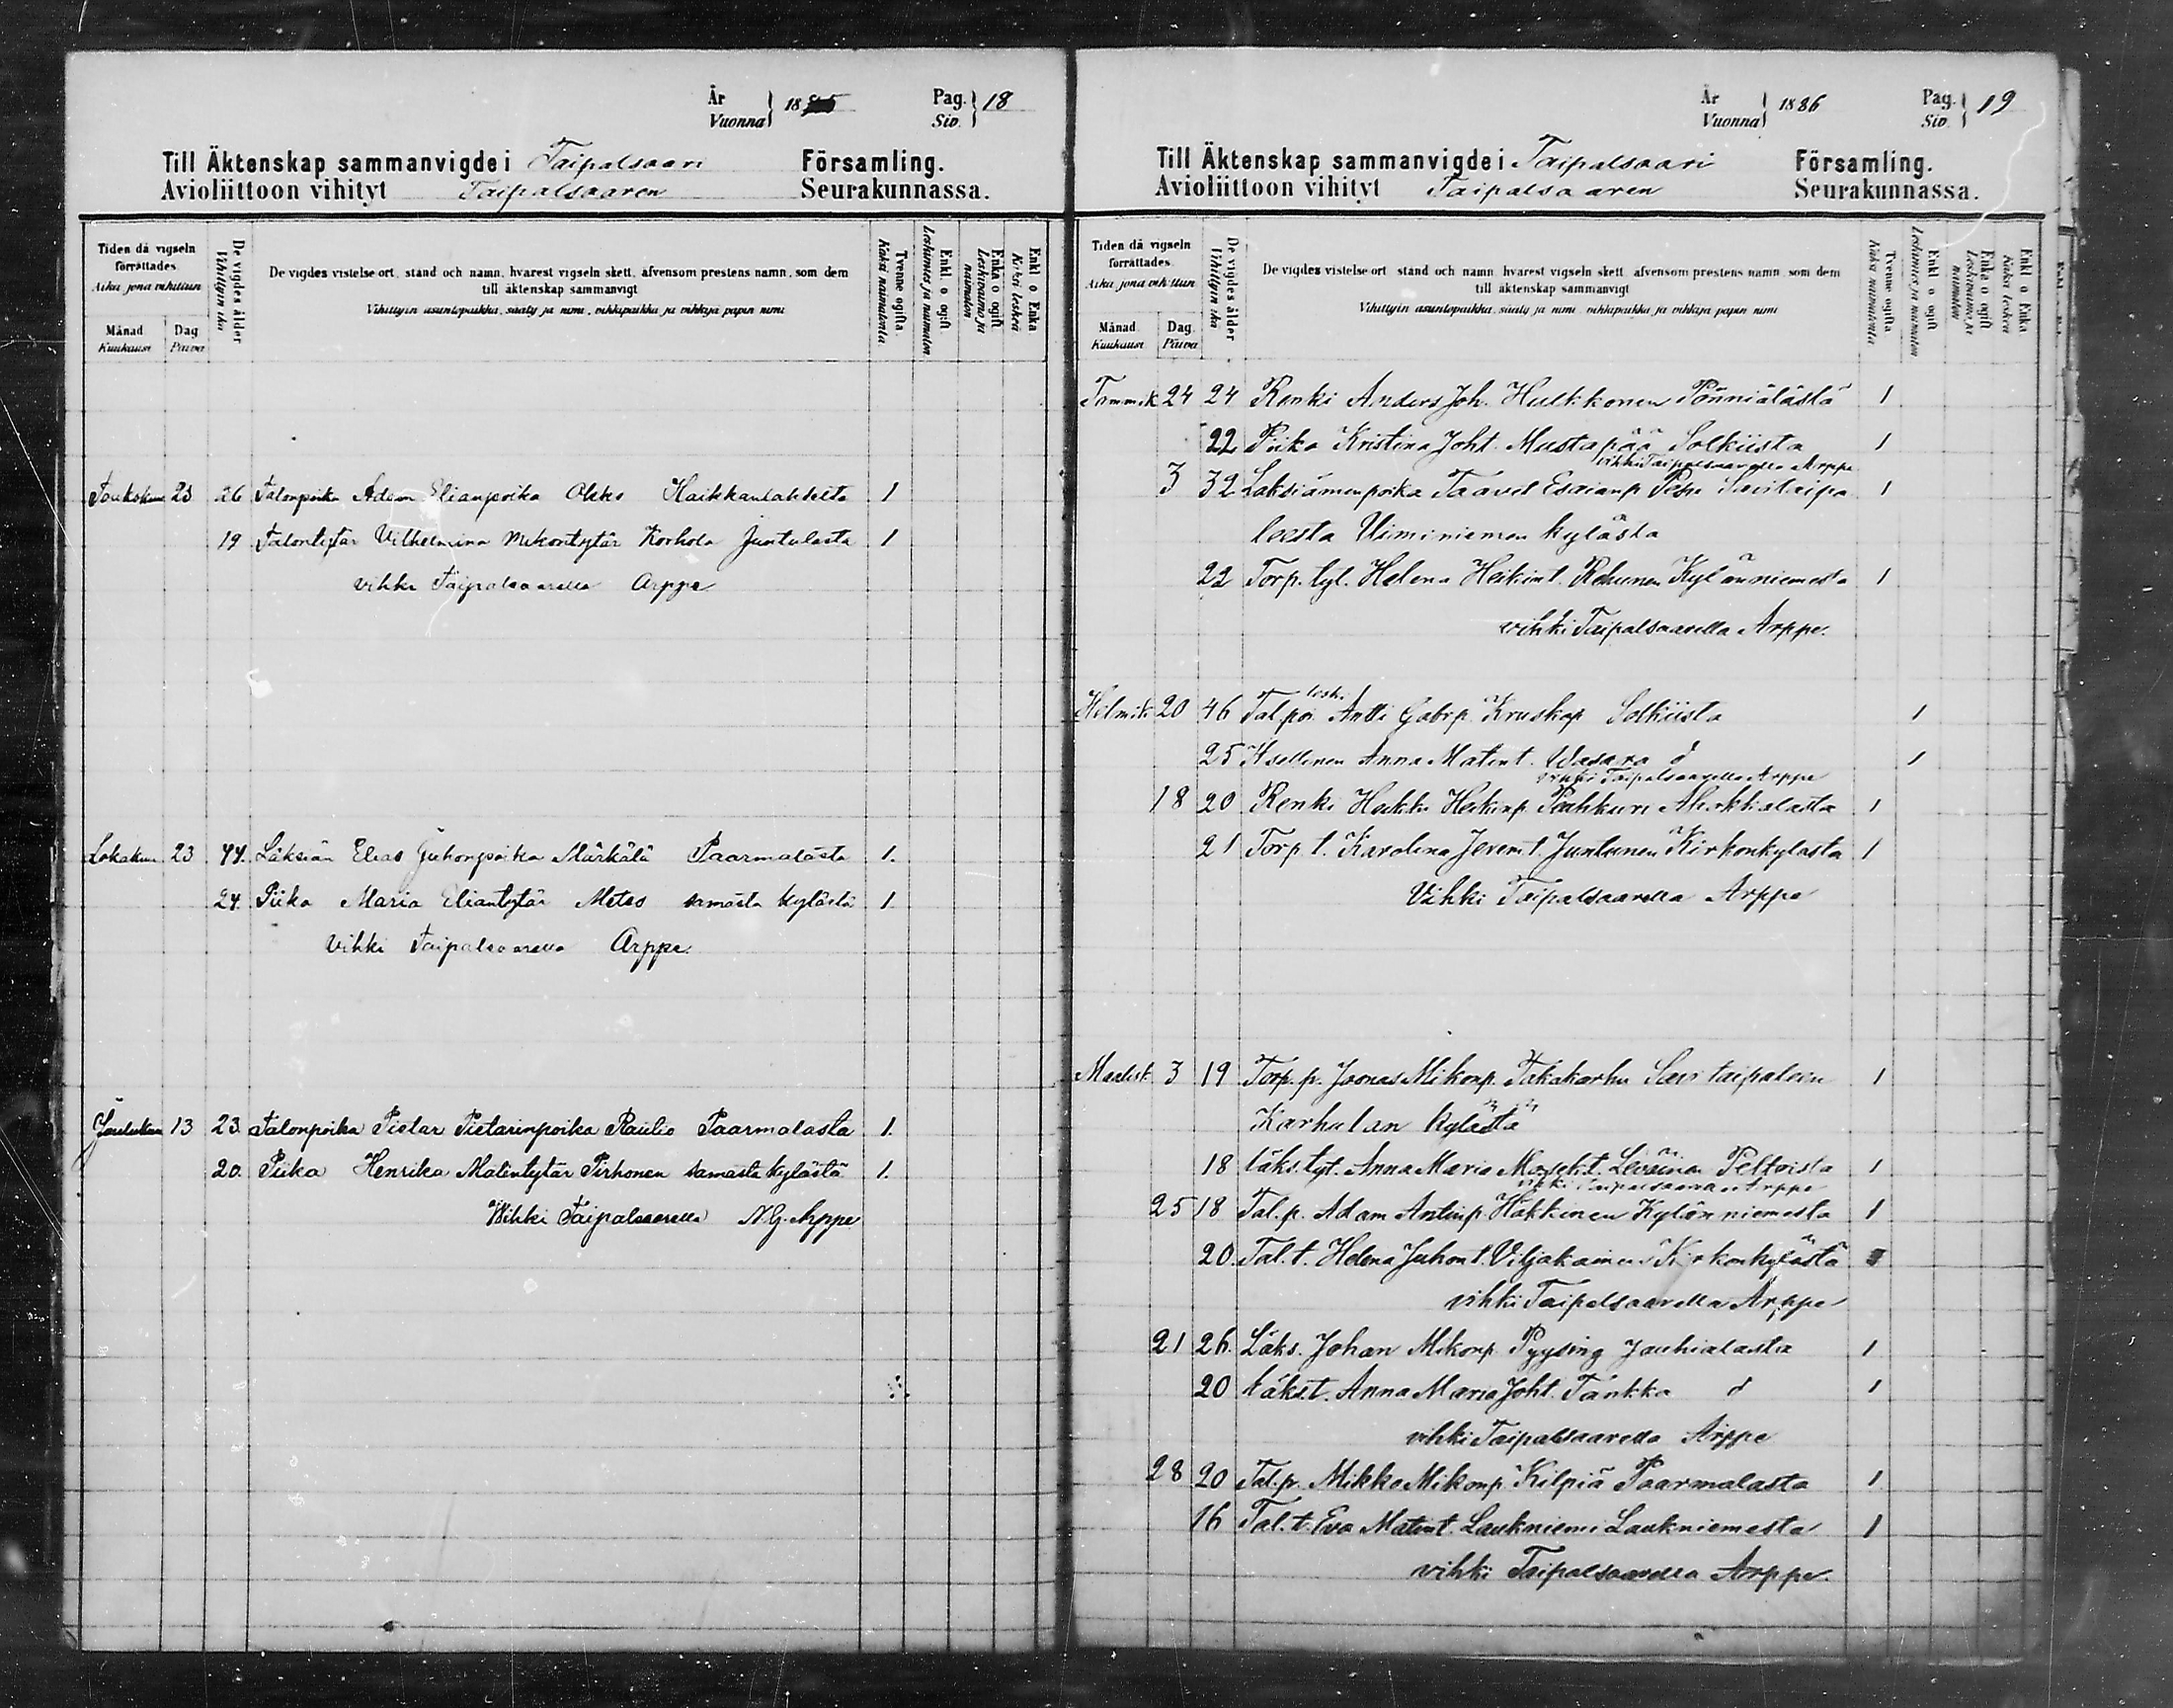 År
Vuonna } 18
Pag.
Siv. } 18
Till Äktenskap sammanvigde i Taipalsaari Församling.
Avioliittoon vihityt Taipalsaaren Seurakunnassa.
Tiden då vigseln förrättades.
Aika, jona vihittiin
Månad
Kuukausi
Dag
Päivä
De vigdes ålder
Vihittyin ikä
De vigdes vistelse ort, stånd och namn, hvarest vigseln skett, äfvensom prestens namn, som dem
till äktenskap sammanvigt
Vihittyin asuntopaikka, sääty ja nimi, vihkipaikka ja vihkijä papin nimi
Tvenne ogifta.
Kaksi naimatonta.
Enkl. o. ogift
Leskimies ja naimaton
Enka o ogift
Leskivaimo ja naimaton
Enkl o Enka
Kaksi leskeä
Toukokuu 23 26 Talonpoika Adam Elianpoika Olkko Haikkanlahdelta 1
19 Talontytär Vilhelmina Mikontytär Korhola Juntulasta 1
vihki Taipalsaarella Arppe
Lokakuu 23 44. Läksiän Elias Juhonpoika Märkälä Paarmalasta 1.
24. Piika Maria Eliantytär Metso samasta kylästä 1
vihki Taipalsaarella Arppe.
Joulukuu 13 23. Talonpoika Pietar Pietarinpoika Raulio Paarmalasta 1.
20. Piika Henrika Matintytär Pirhonen samasta kylästä 1.
Wihki Taipalsaarella N. G. Arppe
År
Vuonna } 1886
Pag.
Siv. } 19
Till Äktenskap sammanvigde i Taipalsaari Församling.
Avioliittoon vihityt Taipalsaaren Seurakunnassa.
Tiden då vigseln förrättades.
Aika, jona vihittiin
Månad
Kuukausi
Dag
Päivä
De vigdes ålder
Vihittyin ikä
De vigdes vistelse ort, stånd och namn, hvarest vigseln skett, äfvensom prestens namn, som dem
till äktenskap sammanvigt
Vihittyin asuntopaikka, sääty ja nimi, vihkipaikka ja vihkijä papin nimi
Tvenne ogifta.
Kaksi naimatonta
Enkl. o ogift
Leskimies ja naimaton
Enka o ogift
Leskivaimo ja naimaton
Enkl o Enka.
Kaksi leskeä
Tammik 24 24 Renki Anders Joh. Hulkkonen Pönniälästä 1
22 Piika Kristina Joht. Mustapää Solkiista 1
vihki Taipalsaarella Arppe
3 32 Läksiämenpoika Taavet Esaianp. Pesu Savitaipa 1
leesta Uiminiemen kylästä
22 Torp. tyt. Helena Heikint. Rehunen Kylänniemestä 1
vihki Taipalsaarella Arppe.
leski
Helmik 20 46 Tal poi Antti Gabrp. Kruskop Solkiista 1
25 Itsellinen Anna Matint. Wasara d 1
vihki Taipalsaarella Arppe
18 20 Renki Heikki Heikinp. Pahkuri Ahokkalasta 1
21 Torp. t. Karolina Jeremt. Juntunen Kirkonkylästä 1
Vihki Taipalsaarella Arppe
Maalisk 3 19 Torp. p. Joonas Mikonp. Takakarhu Savitaipaleen 1
Karhulan kylästä
18 Läks. tyt. Anna Maria Leväinen Peltoista 1
vihki Taipalsaarella Arppe
25 18 Tal. p. Adam Antinp. Häkkinen Kylänniemestä 1
20. Tal. t. Helena Juhont. Viljakainen Kirkonkylästä
vihki Taipalsaarella Arppe
21 26 Läks. Johan Mikonp. Pyysing Jauhialasta 1
20 Läks. t. Anna Maria Joht. Tänkka d 1
vihki Taipalsaarella Arppe
28 20 Tal. p. Mikko Mikonp. Kilpiä Paarmalasta 1
16 Tal. t. Eva Matint. Laukniemi Laukniemestä 1
vihki Taipalsaarella Arppe.